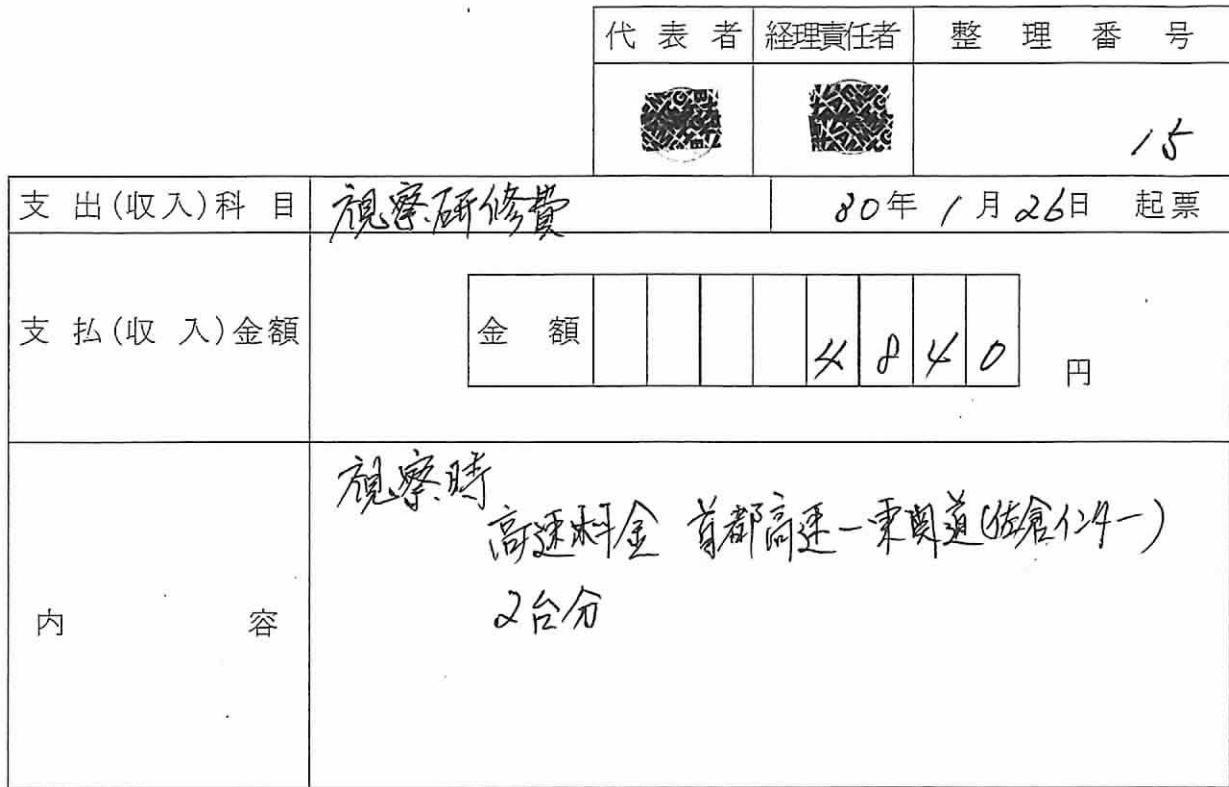 代表者 経理責任者 整理番号
15
支出(収入)科目 視察研修費 30年1月26日 起票
支払(収入)金額 金額 4840 円
視察時
高速料金 首都高速ー東関道(佐倉インター)
内容 2台分